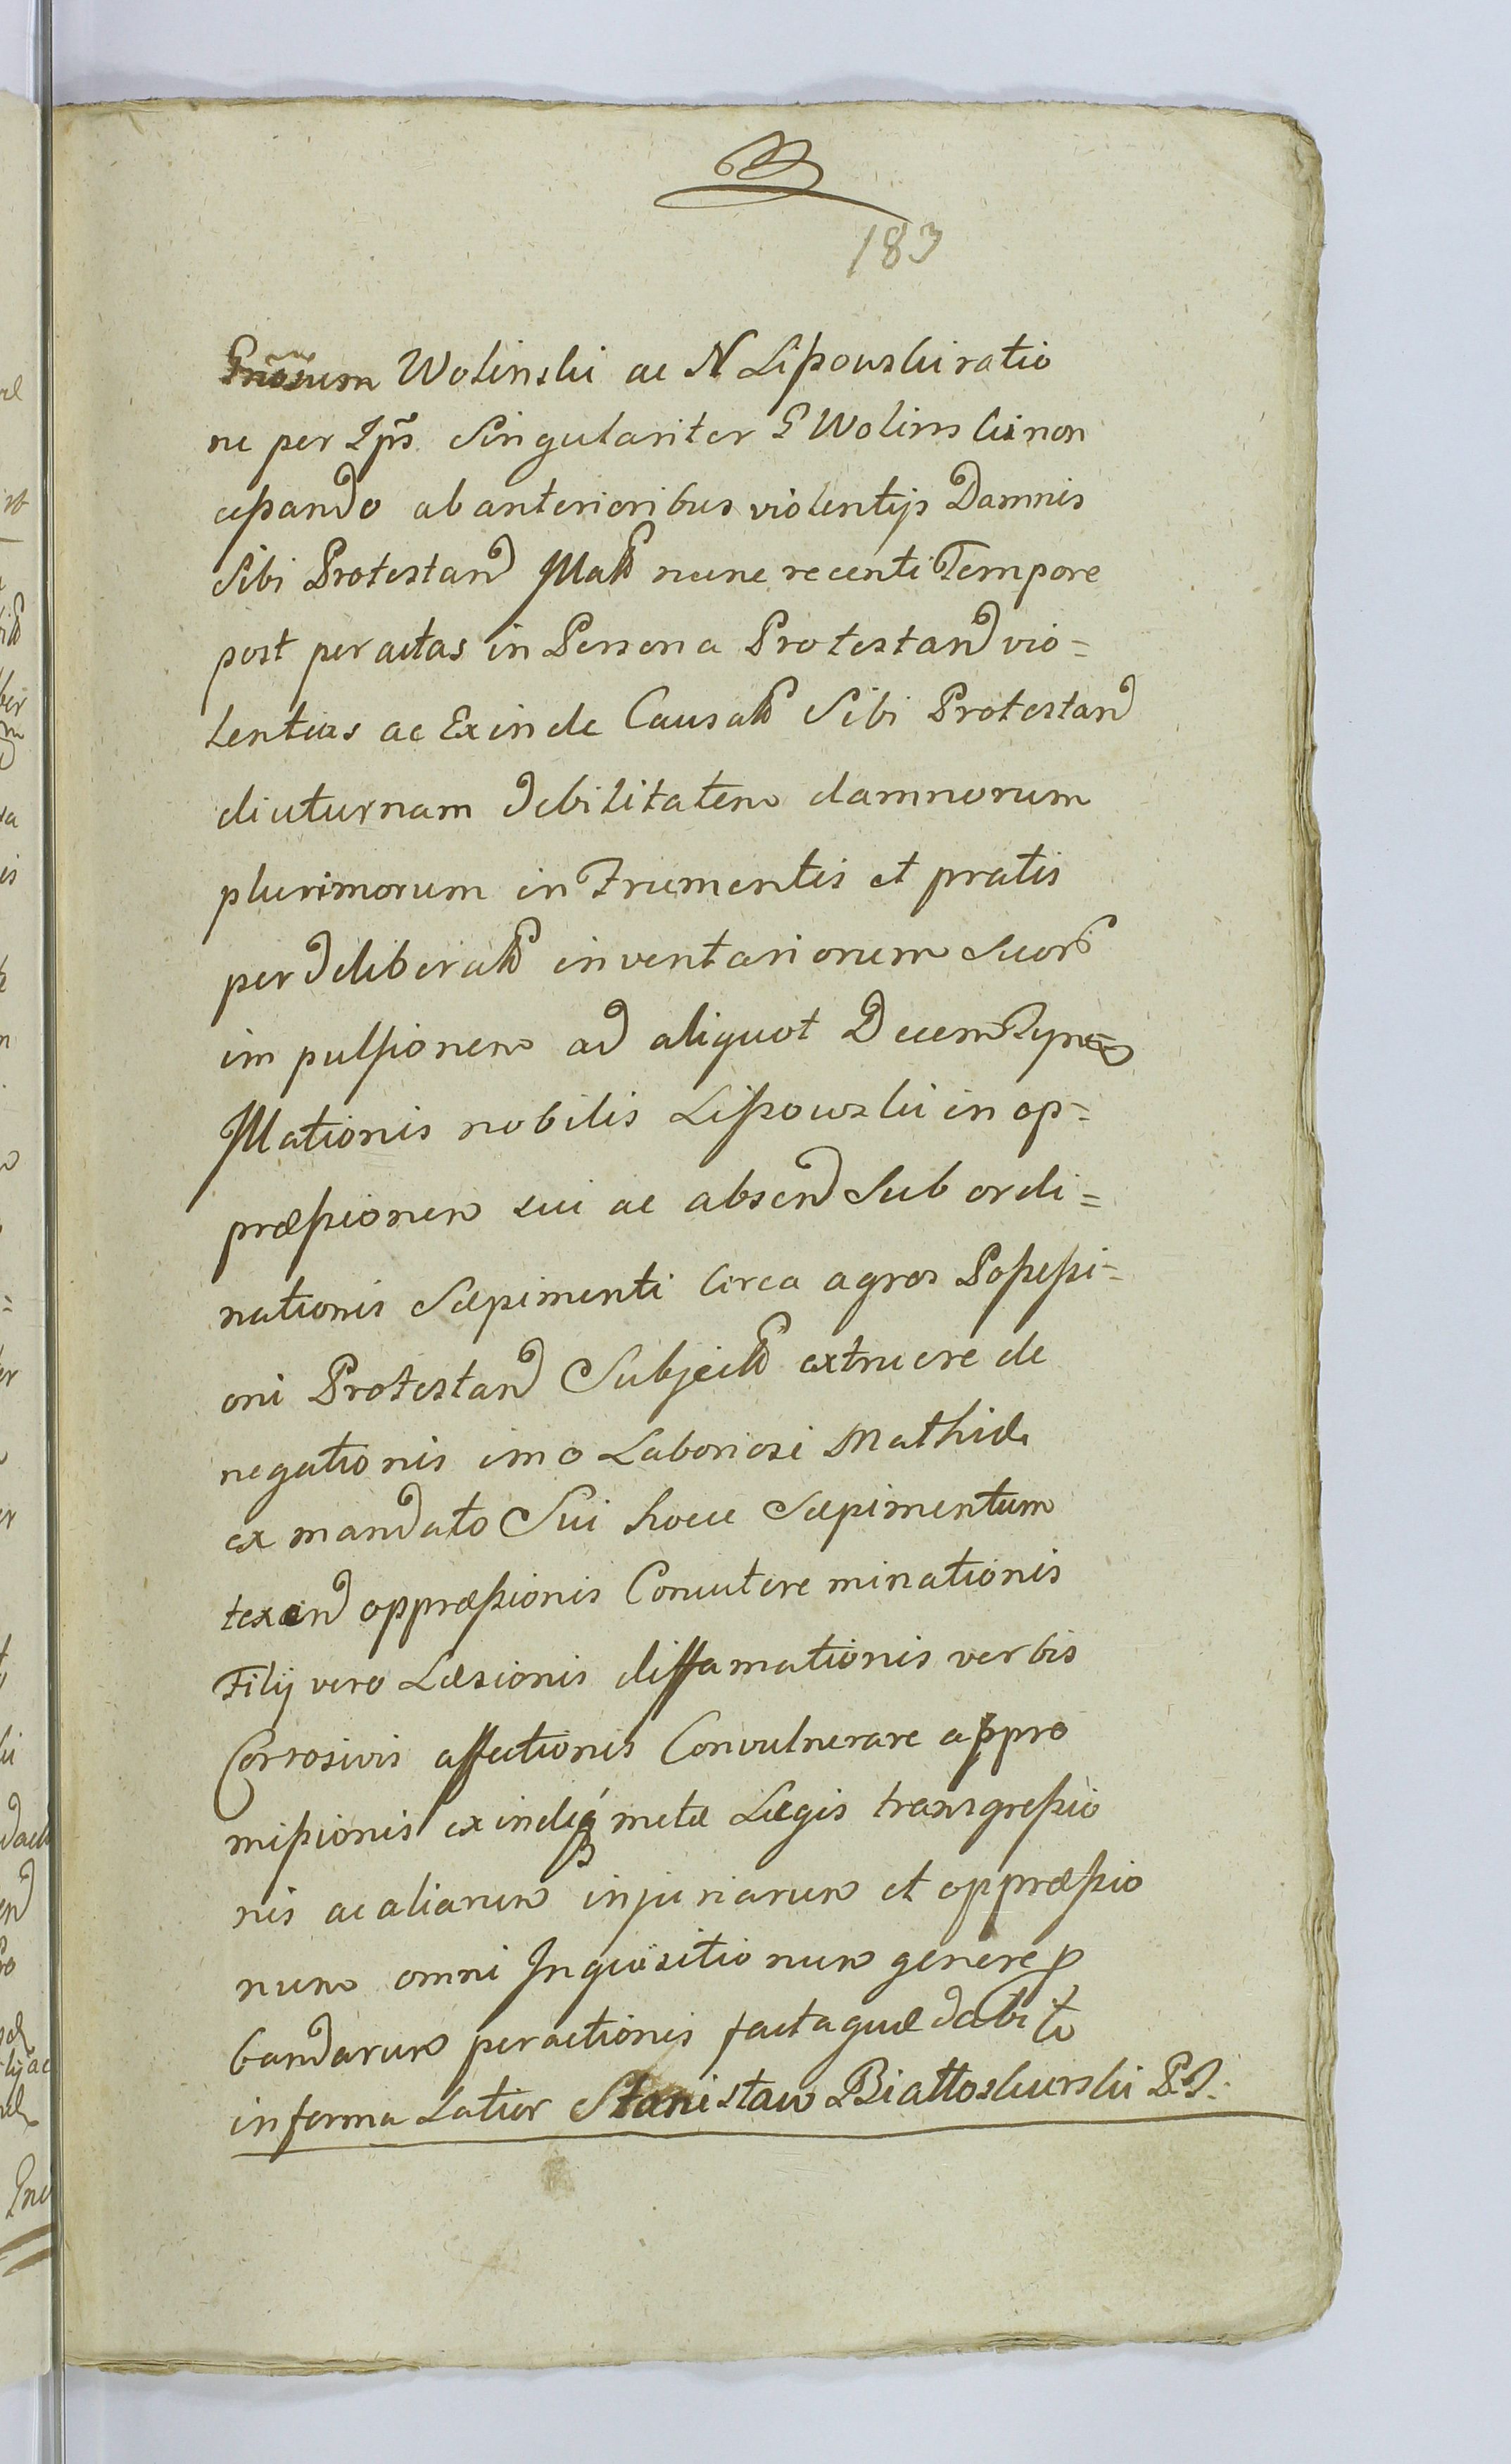 183
Gnosum Wolinski ac N Lipowski ratio
ne per Ips. Singulariter G Wolinski non
cessando ab anterioribus violentijs Damnis
Sibi Protestand Illatt nunc recenti Tempore
post peractas in Persona Protestand vio=
lentias ac Exinde Causatt Sibi Protestand
diuturnam debilitatem damnorum
plurimorum in Frumentis et pratis
per deliberatt inventariorum suor
impulsionem ad aliquot Decem
Illationis nobilis Lipowski in op=
præssionem sui ac absend Sub ordi=
nationis Sæpimenti Circa agros Possessi=
oni Protestand Subjectt extruere de
negationis imo Laboriosi Mathiæ
ex mandato Sui hocce Sæpimentum
texend oppræssionis Concutere minationis
Filij vero Læsionis diffamationis verbis
Corrosivis affectionis Convulnerare appro
missionis exindeq metæ Legis transgressio
nis ac aliarum injuriarum et oppræssio
num omni Inquisitionum genere p
bandarum peractionis facta quæ dabit
in forma Latior Stanisław Białłoskurski P.J.